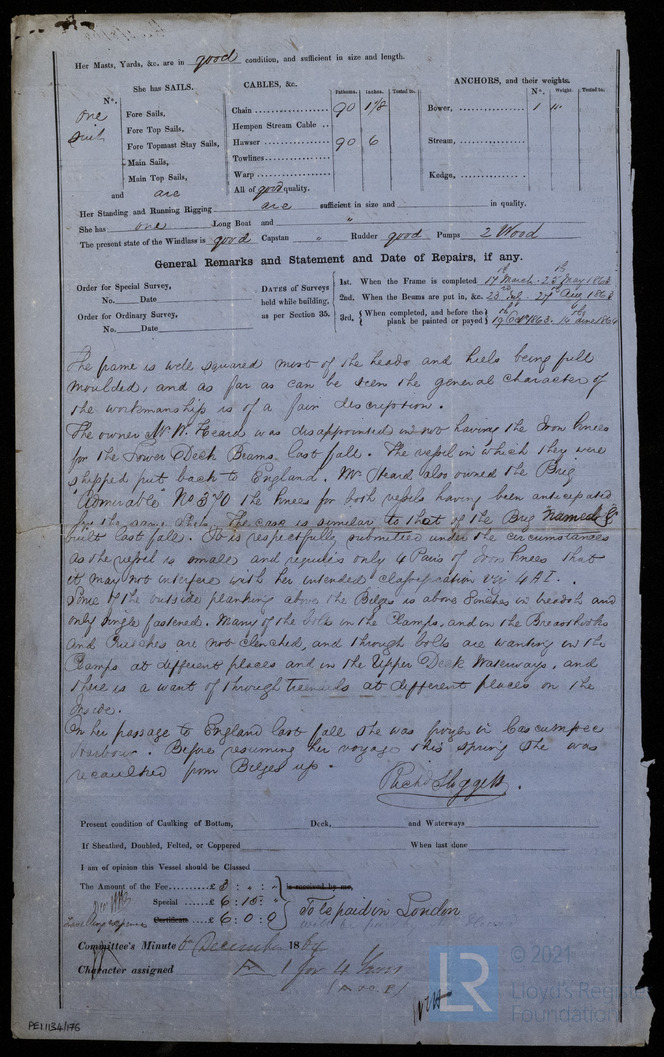 Her Masts, Yards, &c. are in good condition, and sufficient in size and length.
She has SAILS.
CABLES, &c.
ANCHORS, and their weights.
N°.
Fathoms. Inches. Tested to.
N°. Weight. Tested to.
one Fore Sails,
Chain 90 1 1/8
Bower, 1
suit Fore Top Sails,
Hempen Stream Cable
Fore Topmast Stay Sails,
Hawser 90 6
Stream,
Main Sails,
Towlines
Main Top Sails,
Warp
Kedge,
and are
All of good quality.
Her Standing and Running Rigging are sufficient in size and in quality.
She has one Long Boat and "
The present state of the Windlass is good Capstan " Rudder good Pumps 2 Wood
General Remarks and Statement and Date of Repairs, if any.
Order for Special Survey,
No. Date
Order for Ordinary Survey,
No. Date
DATES of Surveys held while building, as per Section 35.
1st. When the Frame is completed 17th March - 25th May 1863
2nd. When the Beams are put in, &c. 23rd July 27th Aug 1863
3rd, When completed, and before the plank be painted or payed 19th Oct 1863. 14th June 1864
The frame is well squared most of the heads and heels being full
moulded, and as far as can be seen the general character of
the workmanship is of a fair description.
The owner Mr W. Heard was disappointed in not having the Iron Knees
for the Lower Deck Beams last fall. The vessel in which they were
shipped put back to England. Mr Heard also owned the Brig
"Admirable" No 370 the Knees for both vessels having been anticipated
by the same Ship. The case is similar to that of the Brig
built last fall. It is respectfully submitted under the circumstances
as the vessel is small and requires only 4 Pairs of Iron Knees that
it may not interfere with her intended classification viz 4 A 1.
Some of the outside planking above the Bilges is above 8 inches in breadth and
only single fastened. Many of the bolts in the Clamps, and in the Breasthooks
and Crutches are not clenched, and through bolts are wanting in the
Clamps at different places and in the Upper Deck Waterways, and
there is a want of through treenails at different places on the
Inside.
On her passage to England last fall she was frozen in Cascumpec
Harbour. Before resuming her voyage this spring she was
recaulked from Bilges up.
Present condition of Caulking of Bottom, Deck, and Waterways
If Sheathed, Doubled, Felted, or Coppered When last done
I am of opinion this Vessel should be Classed
The Amount of the Fee £ 3 : " : " is received by me,
Special £ 6 : 15 : "
Certificate £ 6 : 0 : 0
To be paid in London
Committee's Minute 6th December 1864
Character assigned A 1 for 4 Years
PE11134/176
LR
© 2021
Lloyd's Register
Foundation